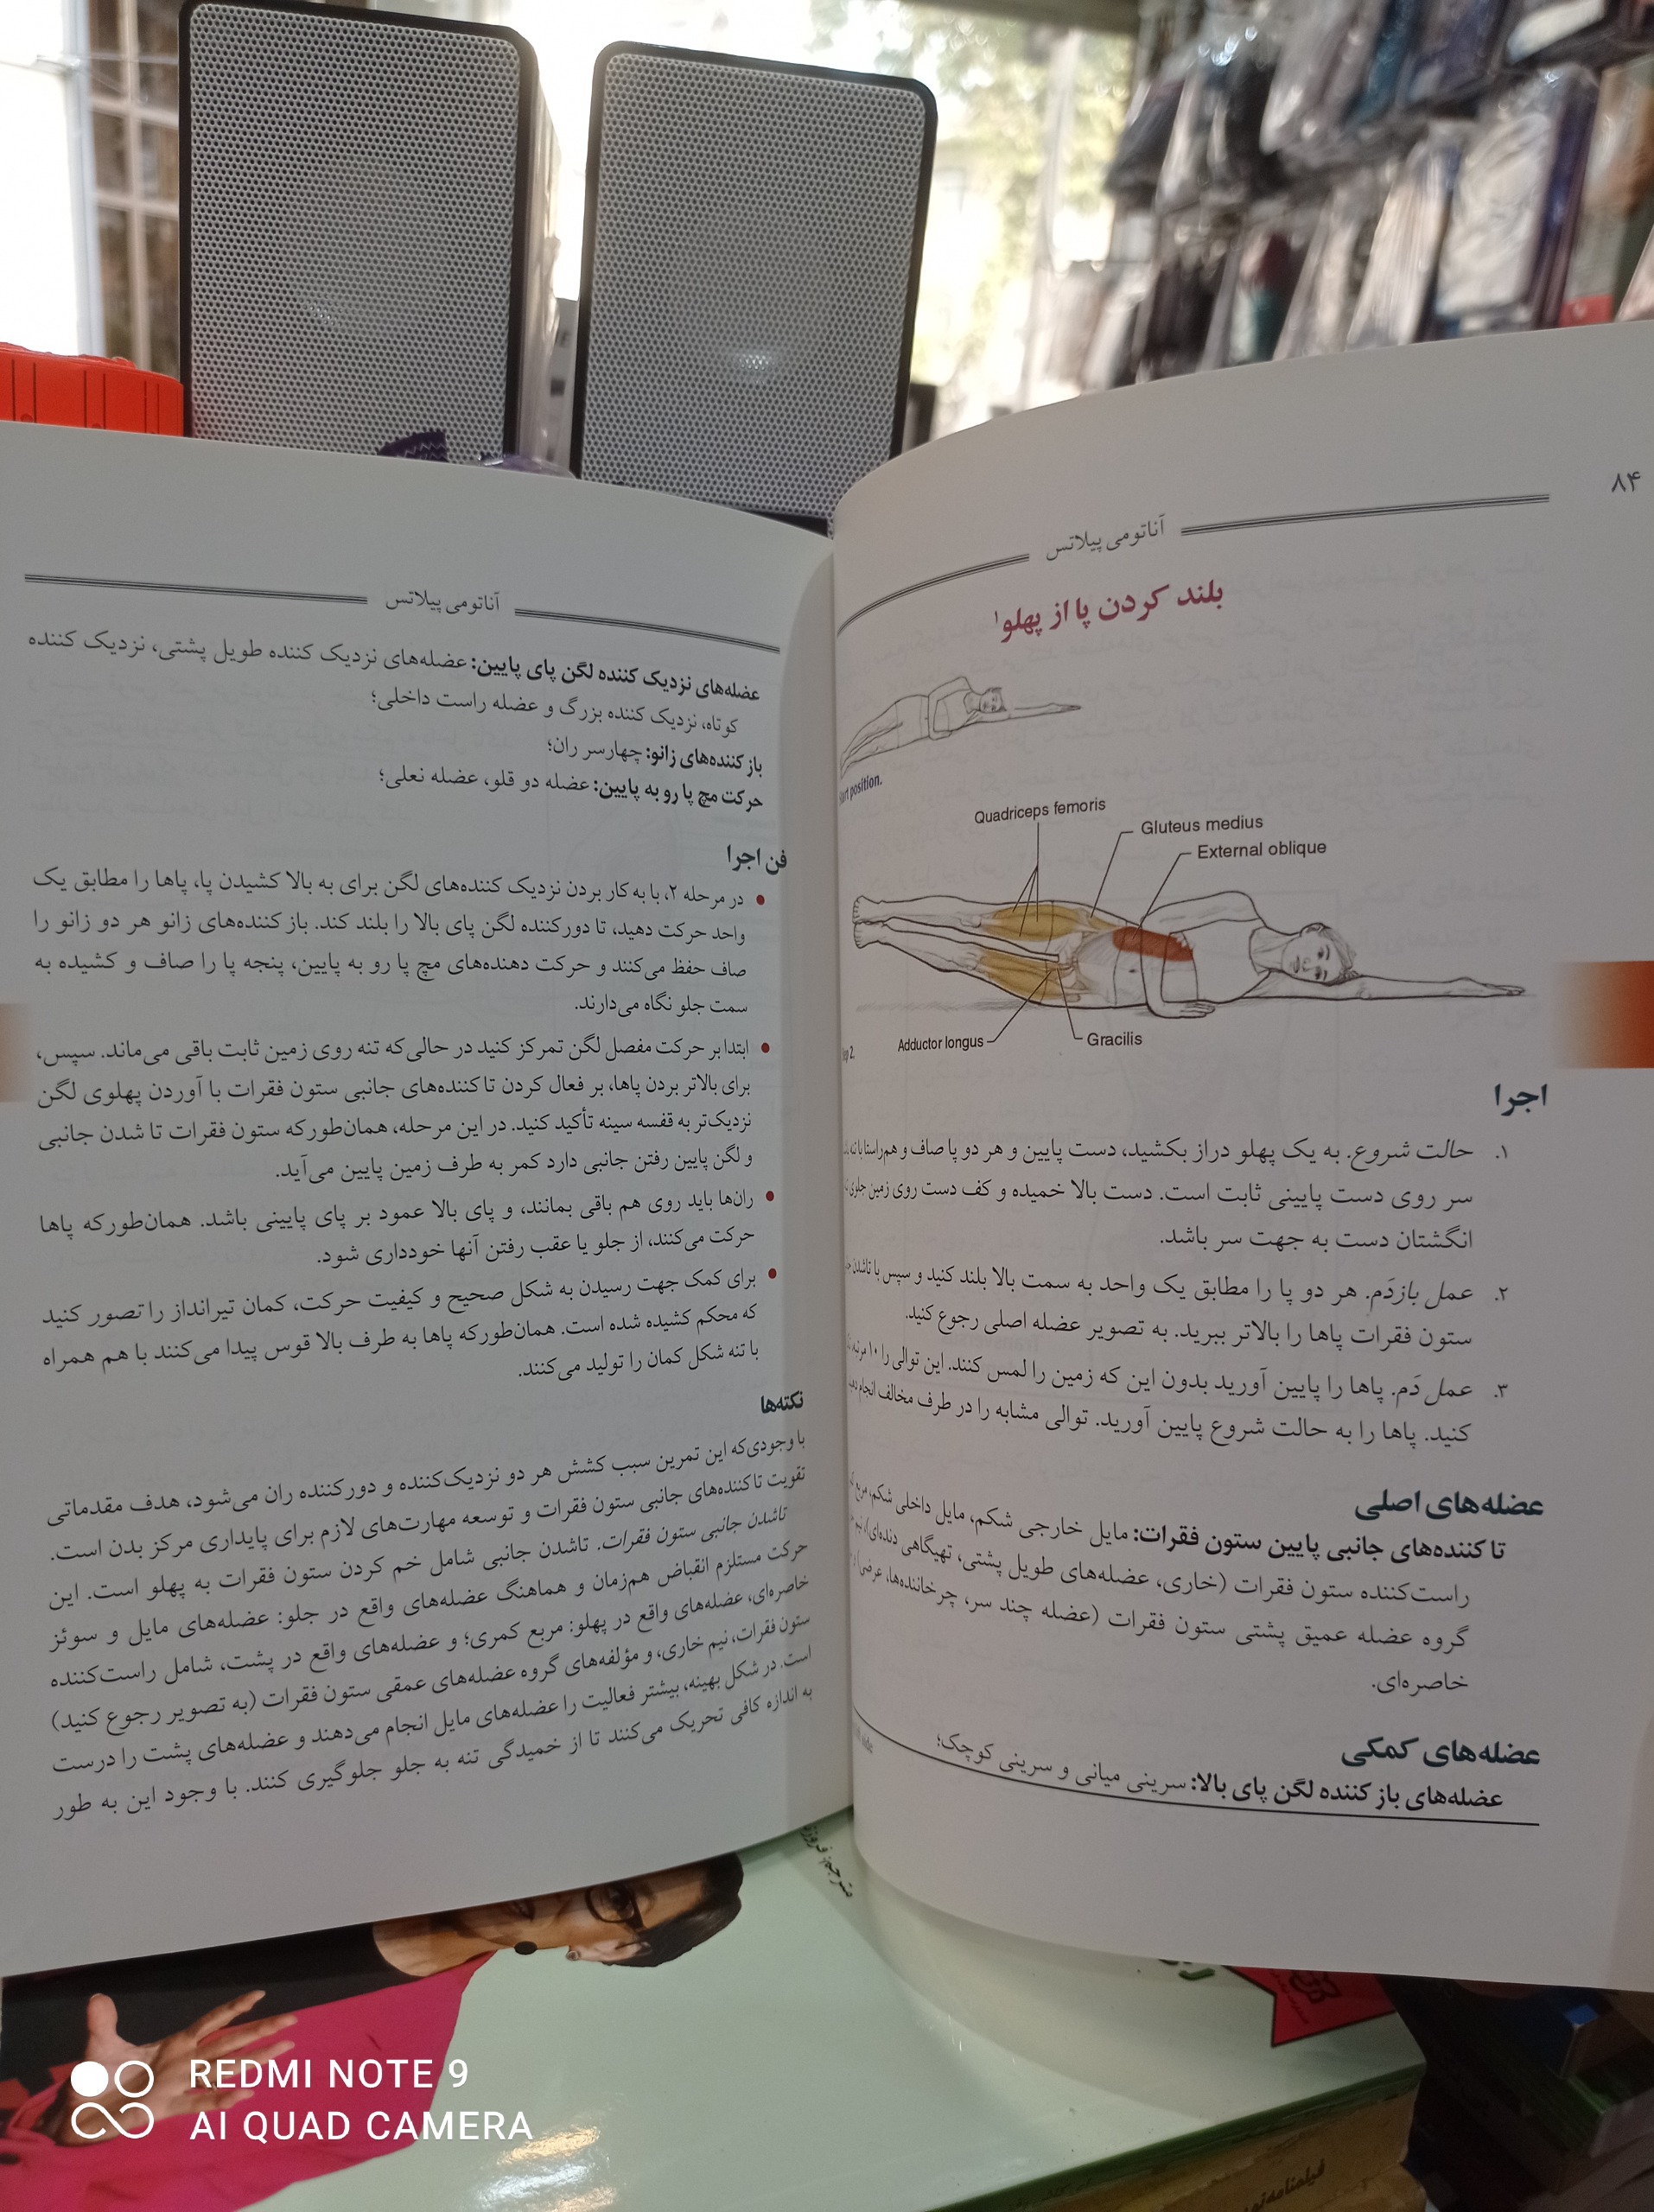 ۸۴
آناتومی پیلاتس
بلند کردن پا از پهلو۱
position.
Quadriceps femoris
Gluteus medius
External oblique
Adductor longus
Gracilis
اجرا
۱. حالت شروع. به یک پهلو دراز بکشید، دست پایین و هر دو پا صاف و هم‌راستا با تنه
سر روی دست پایینی ثابت است. دست بالا خمیده و کف دست روی زمین جلوی
انگشتان دست به جهت سر باشد.
۲. عمل بازدَم. هر دو پا را مطابق یک واحد به سمت بالا بلند کنید و سپس با تاشدن
ستون فقرات پاها را بالاتر ببرید. به تصویر عضله اصلی رجوع کنید.
۳. عمل دَم. پاها را پایین آورید بدون این که زمین را لمس کنند. این توالی را ۱۰ مرتبه
کنید. پاها را به حالت شروع پایین آورید. توالی مشابه را در طرف مخالف انجام
عضله‌های اصلی
تا کننده‌های جانبی پایین ستون فقرات: مایل خارجی شکم، مایل داخلی شکم، مربع
راست‌کننده ستون فقرات (خاری، عضله‌های طویل پشتی، تهیگاهی دنده‌ای)، نیم
گروه عضله عمیق پشتی ستون فقرات (عضله چند سر، چرخاننده‌ها، عرضی)
خاصره‌ای.
عضله‌های کمکی
عضله‌های باز کننده لگن پای بالا: سرینی میانی و سرینی کوچک؛
آناتومی پیلاتس
عضله‌های نزدیک کننده لگن پای پایین: عضله‌های نزدیک کننده طویل پشتی، نزدیک کننده
کوتاه، نزدیک کننده بزرگ و عضله راست داخلی؛
باز کننده‌های زانو: چهارسر ران؛
حرکت مچ پا رو به پایین: عضله دو قلو، عضله نعلی؛
فن اجرا
• در مرحله ۲، با به کار بردن نزدیک کننده‌های لگن برای به بالا کشیدن پا، پاها را مطابق یک
واحد حرکت دهید، تا دورکننده لگن پای بالا را بلند کند. باز کننده‌های زانو هر دو زانو را
صاف حفظ می‌کنند و حرکت دهنده‌های مچ پا رو به پایین، پنجه پا را صاف و کشیده به
سمت جلو نگاه می‌دارند.
• ابتدا بر حرکت مفصل لگن تمرکز کنید در حالی‌که تنه روی زمین ثابت باقی می‌ماند. سپس،
برای بالاتر بردن پاها، بر فعال کردن تاکننده‌های جانبی ستون فقرات با آوردن پهلوی لگن
نزدیک‌تر به قفسه سینه تأکید کنید. در این مرحله، همان‌طورکه ستون فقرات تا شدن جانبی
و لگن پایین رفتن جانبی دارد کمر به طرف زمین پایین می‌آید.
• ران‌ها باید روی هم باقی بمانند، و پای بالا عمود بر پای پایینی باشد. همان‌طورکه پاها
حرکت می‌کنند، از جلو یا عقب رفتن آنها خودداری شود.
• برای کمک جهت رسیدن به شکل صحیح و کیفیت حرکت، کمان تیرانداز را تصور کنید
که محکم کشیده شده است. همان‌طورکه پاها به طرف بالا قوس پیدا می‌کنند با هم همراه
با تنه شکل کمان را تولید می‌کنند.
نکته‌ها
با وجودی‌که این تمرین سبب کشش هر دو نزدیک‌کننده و دورکننده ران می‌شود، هدف مقدماتی
تقویت تاکننده‌های جانبی ستون فقرات و توسعه مهارت‌های لازم برای پایداری مرکز بدن است.
تاشدن جانبی ستون فقرات. تاشدن جانبی شامل خم کردن ستون فقرات به پهلو است. این
حرکت مستلزم انقباض هم‌زمان و هماهنگ عضله‌های واقع در جلو: عضله‌های مایل و سوئز
خاصره‌ای، عضله‌های واقع در پهلو: مربع کمری؛ و عضله‌های واقع در پشت، شامل راست‌کننده
ستون فقرات، نیم خاری، و مؤلفه‌های گروه عضله‌های عمقی ستون فقرات (به تصویر رجوع کنید)
است. در شکل بهینه، بیشتر فعالیت را عضله‌های مایل انجام می‌دهند و عضله‌های پشت را درست
به اندازه کافی تحریک می‌کنند تا از خمیدگی تنه به جلو جلوگیری کنند. با وجود این به طور
مترجم:
REDMI NOTE 9
AI QUAD CAMERA